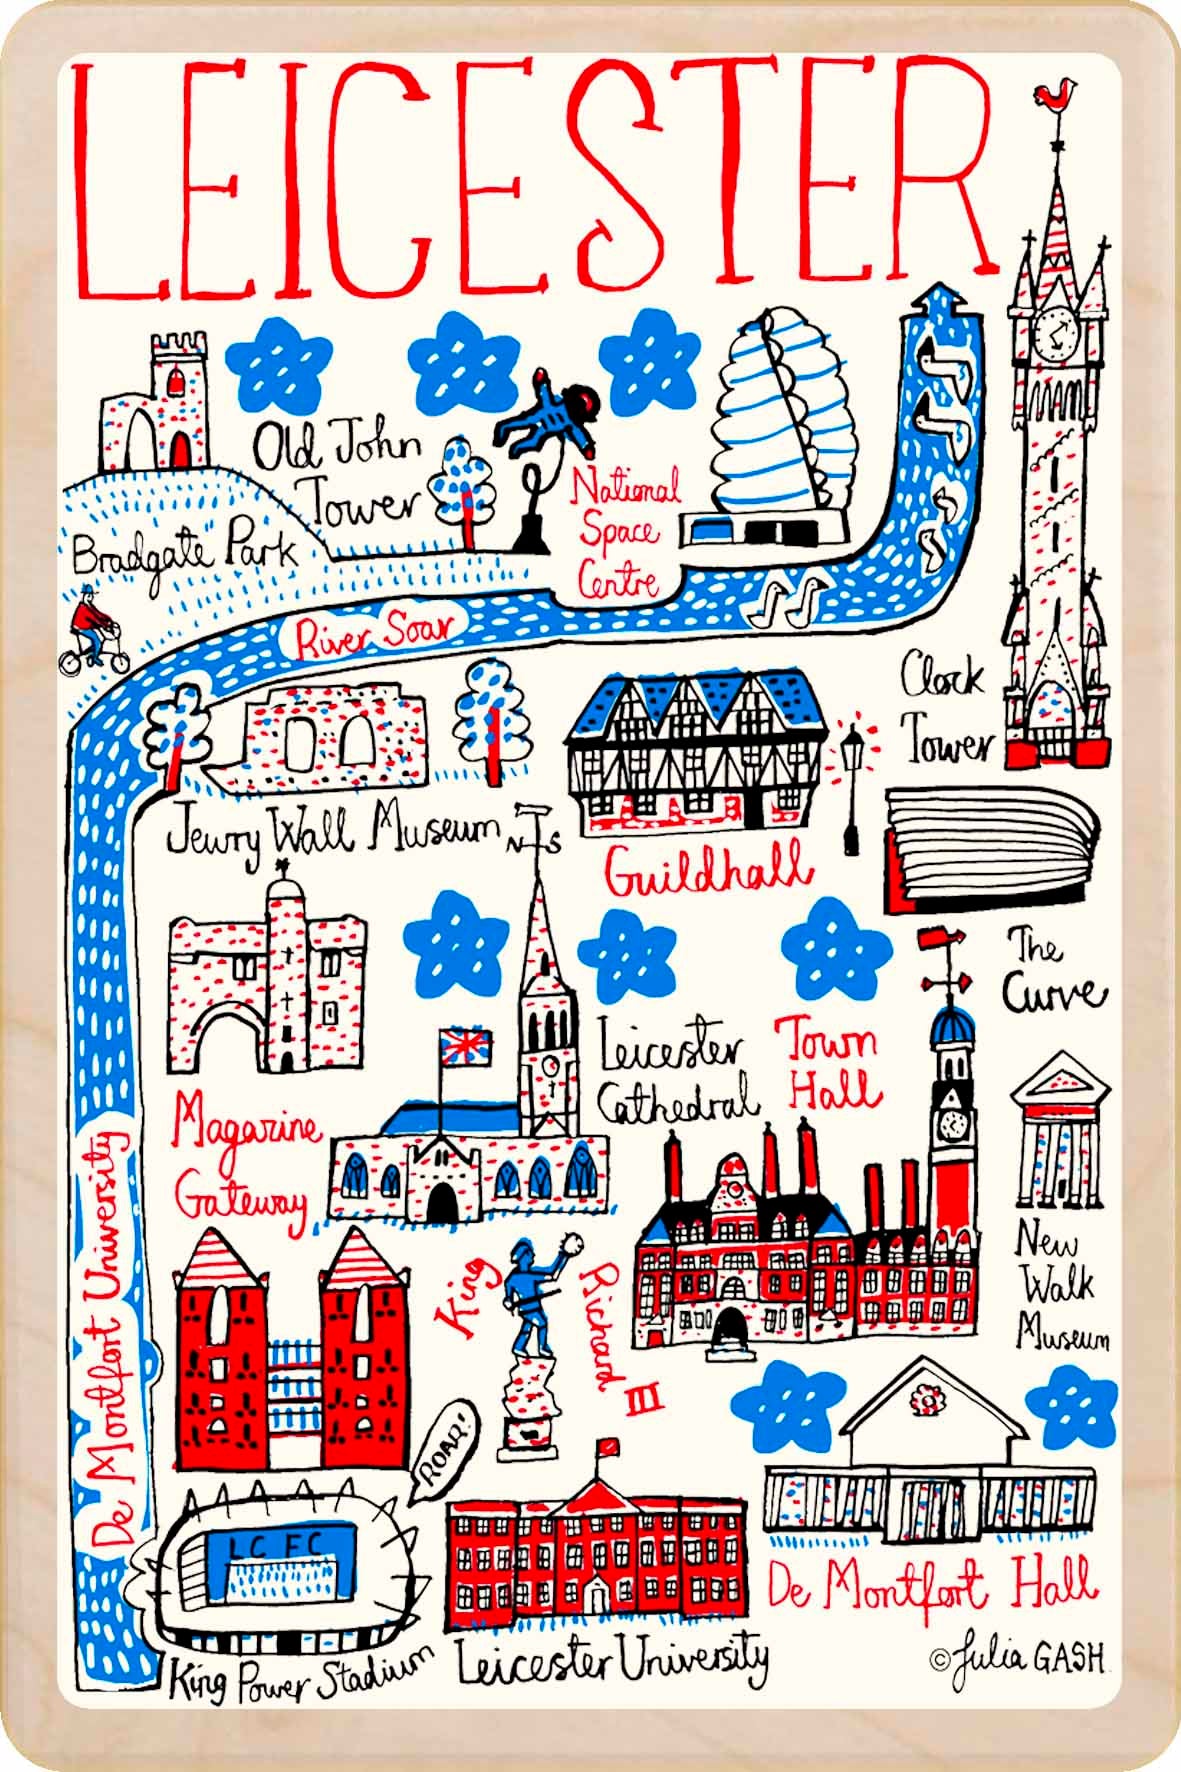 LEICESTER
Old John
Tower
Bradgate Park
National
Space
Centre
River Soar
Clock
Tower
Jewry Wall Museum
N S
Guildhall
The
Curve
Magazine
Gateway
Leicester
Cathedral
Town
Hall
New
Walk
Museum
De Montfort University
King
Richard
III
ROAR!
LCFC
King Power Stadium
Leicester University
De Montfort Hall
© Julia GASH